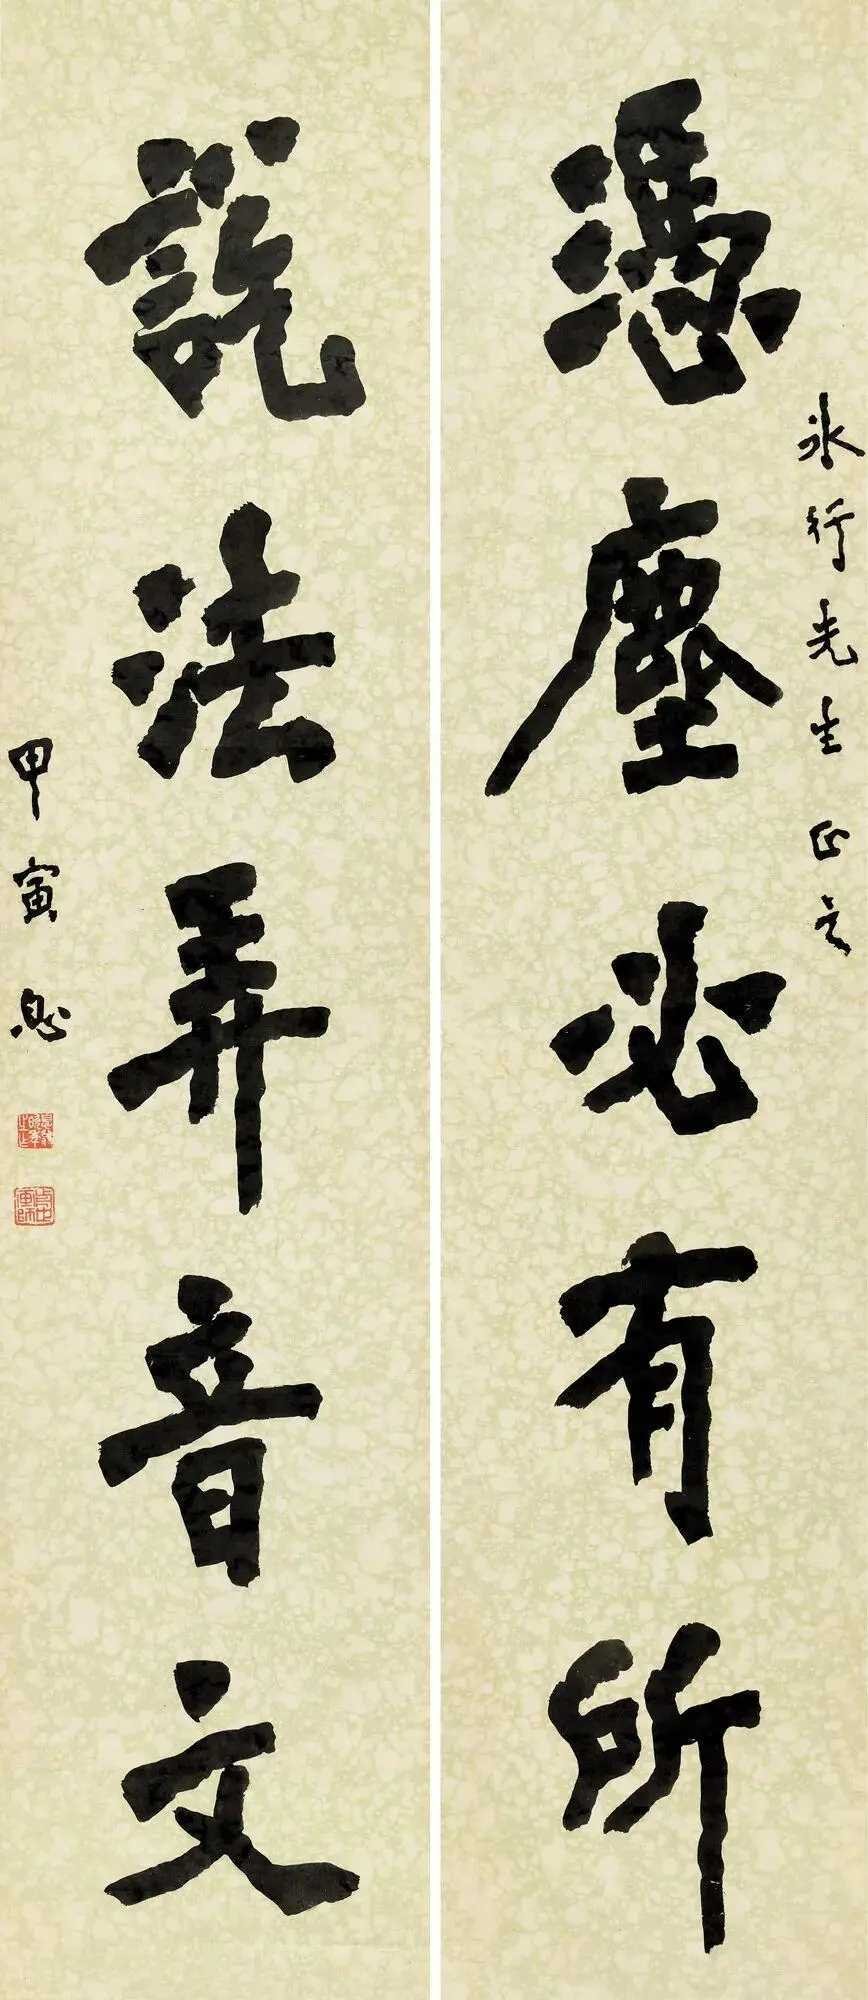 憑塵必有所
氷行先生正之
説法弄音文
甲寅